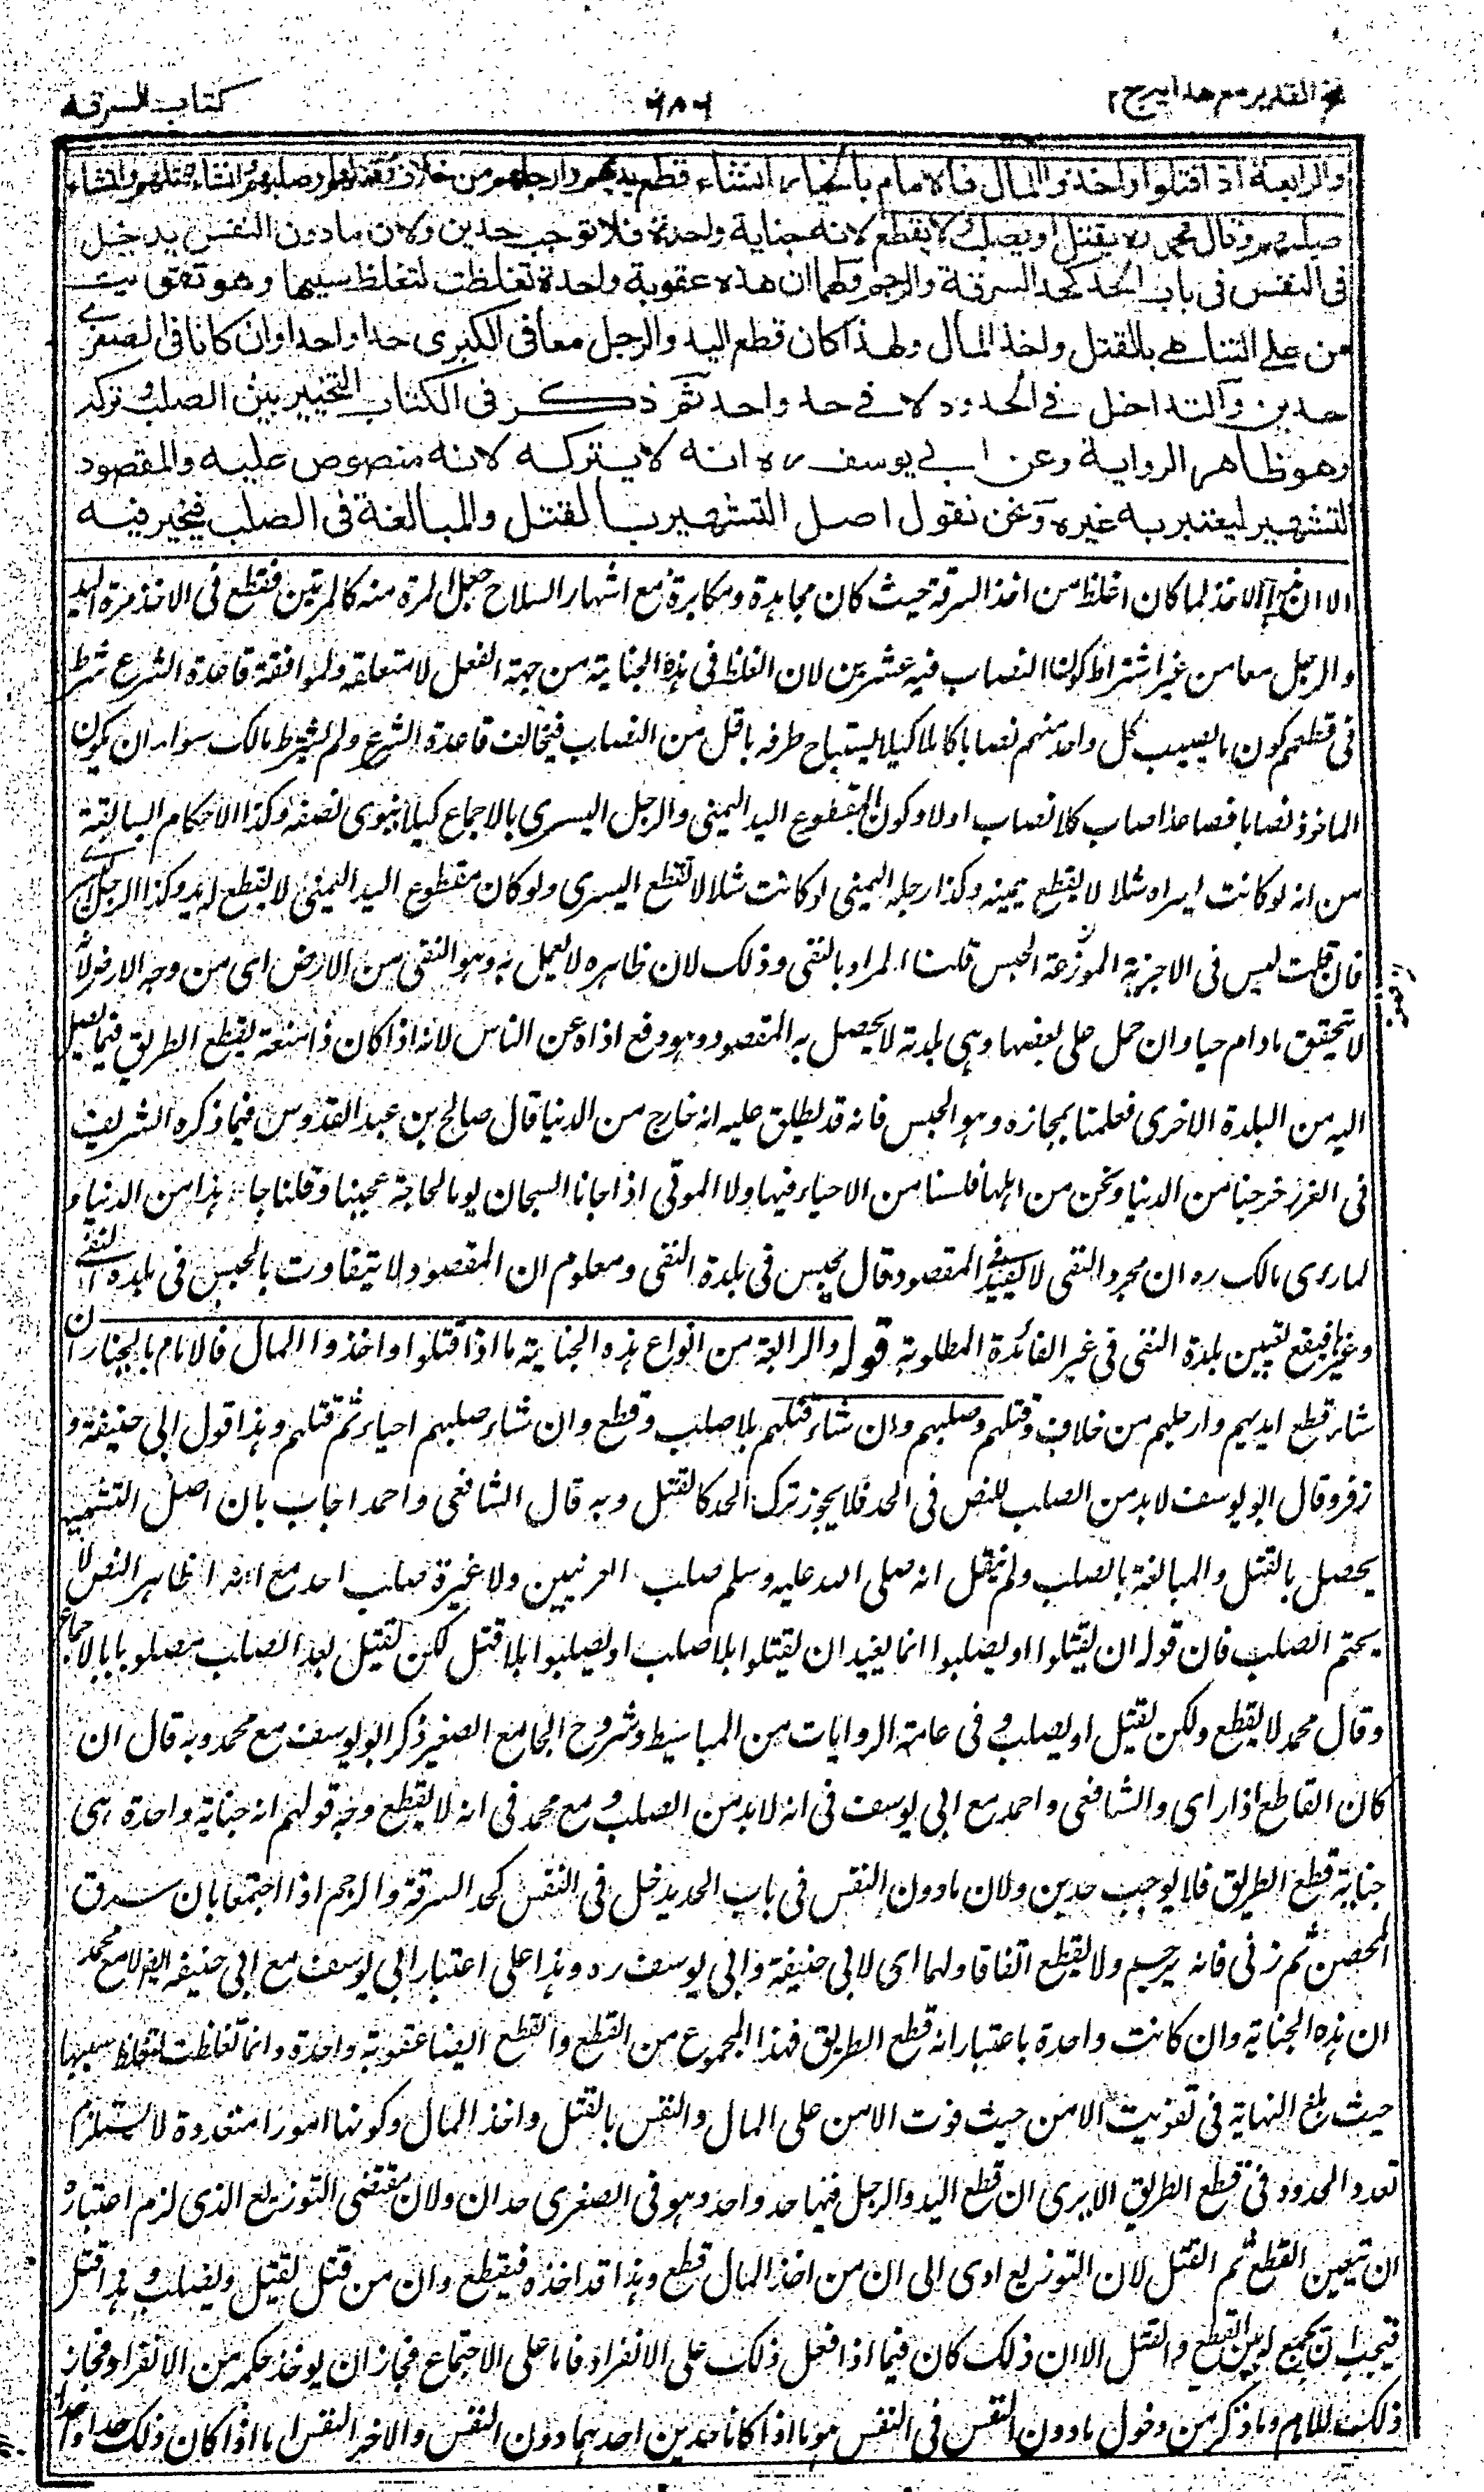 فتح القدير مع هدايه ج ٢
٦٨٦
كتاب السرقه
والرابعة اذا قتلوا واخذوا المال فالامام بالخيار ان شاء قطع ايديهم وارجلهم من خلاف وقتلهم او صلبهم وان شاء قتلهم وان شاء
صلبهم وقال محمد ره يقتل او يصلب ولا يقطع لانه جناية واحدة فلا توجب حدين ولان ما دون النفس يدخل
فى النفس فى باب الحد كحد السرقة والرجم ولهما ان هذه عقوبة واحدة تغلظت لتغلظ سببها وهو تفويت
من على التناهى بالقتل واخذ المال ولهذا كان قطع اليد والرجل معا فى الكبرى حدا واحدا وان كانا فى الصغرى
حدين والتداخل فى الحدود لا فى حد واحد ثم ذكر فى الكتاب التخيير بين الصلب وتركه
وهو ظاهر الرواية وعن ابى يوسف ره انه لا يتركه لانه منصوص عليه والمقصود
التشهير ليعتبر به غيره ونحن نقول اصل التشهير بالقتل والمبالغة فى الصلب فيخير فيه
الا ان هذا الاخذ لما كان اغلظ من اخذ السرقة حيث كان مجاهرة ومكابرة مع اشهار السلاح جعل المرة منه كالمرتين فقطع فى الاخذ مرة اليد
والرجل معا من غير اشتراط كون النصاب فيه عشرين لان الغلظ فى هذه الجناية من جهة الفعل لا متعلقه ولموافقة قاعدة الشرع شرط
فى قطعهم كون ما يصيب كل واحد منهم نصابا كاملا كيلا يستباح طرفه باقل من النصاب فيخالف قاعدة الشرع ولم يشترط مالك سوى ان يكون
الماخوذ نصابا فصاعدا اصاب كلا نصاب او لا وكون المقطوع اليد اليمنى والرجل اليسرى بالاجماع كيلا ينوى نصفه وكذا الاحكام السابقة
من انه لو كانت يسراه شلا لا يقطع يمينه وكذا رجله اليمنى لو كانت شلا لا تقطع اليسرى ولو كان مقطوع اليد اليمنى لا يقطع له يد وكذا الرجل اليسرى
فان قلت ليس فى الاجزية الموزعة الحبس قلنا المراد بالنفى وذلك لان ظاهره لا يعمل به وهو النفى من الارض اى من وجه الارض لانه
لا يتحقق ما دام حيا وان حمل على بعضها وهى بلدته لا يحصل به المقصود وهو دفع اذاه عن الناس لانه اذا كان ذا منعة يقطع الطريق فيما يصير
اليه من البلدة الاخرى فعملنا بمجازه وهو الحبس فانه قد يطلق عليه انه خارج من الدنيا قال صالح بن عبد القدوس فيما ذكره الشريف
فى الغرر خرجنا من الدنيا ونحن من اهلها فلسنا من الاحياء فيها ولا الموتى اذا جانا السجان يوما لحاجة عجبنا وقلنا جاء هذا من الدنيا و
لما راى مالك ره ان مجرد النفى لا يفيد فى المقصود قال يحبس فى بلدة النفى ومعلوم ان المقصود لا يتفاوت بالحبس فى بلدة النفى
وغيرها فيقع تعيين بلدة النفى فى غير الفائدة المطلوبة قوله والرابعة من انواع هذه الجناية ما اذا قتلوا واخذوا المال فالامام بالخيار ان
شاء قطع ايديهم وارجلهم من خلاف وقتلهم وصلبهم وان شاء قتلهم بلا صلب وقطع وان شاء صلبهم احياء ثم قتلهم وهذا قول ابى حنيفة و
زفر وقال ابو يوسف لا بد من الصلب للنص فى الحد فلا يجوز ترك الحد كالقتل وبه قال الشافعى واحمد اجاب بان اصل التشهير
يحصل بالقتل والمبالغة بالصلب ولم ينقل انه صلى الله عليه وسلم صلب العرنيين ولا غيره صلب احد مع ان ظاهر النص لا
يحتم الصلب فان قوله ان يقتلوا او يصلبوا انما يفيد ان يقتلوا بلا صلب او يصلبوا بلا قتل لكن يقتل بعد الصلب مصلوبا بالاجماع
وقال محمد لا يقطع ولكن يقتل او يصلب وفى عامة الروايات من المباسيط وشروح الجامع الصغير ذكر ابو يوسف مع محمد وبه قال ان
كان القاطع ذا راى والشافعى واحمد مع ابى يوسف فى انه لا بد من الصلب ومع محمد فى انه لا يقطع وجه قولهم انه جناية واحدة هى
جناية قطع الطريق فلا يوجب حدين ولان ما دون النفس فى باب الحد يدخل فى النفس كحد السرقة والرجم اذا اجتمعا بان سرق
المحصن ثم زنى فانه يرجم ولا يقطع اتفاقا ولهما اى لابى حنيفة وابى يوسف ره وهذا على اعتبار ابى يوسف مع ابى حنيفه لا مع محمد
ان هذه الجناية وان كانت واحدة باعتبار انه قطع الطريق فهذا المجموع من القطع والقطع ايضا عقوبة واحدة وانما تغلظت لتغلظ سببها
حيث بلغ النهاية فى تفويت الامن حيث فوت الامن على المال والنفس بالقتل واخذ المال وكونها امورا متعددة لا يستلزم
تعدد الحدود فى قطع الطريق الا يرى ان قطع اليد والرجل فيها حد واحد وهو فى الصغرى حدان ولان مقتضى التوزيع الذى لزم اعتباره
ان يتعين القطع ثم القتل لان التوزيع ادى الى ان من اخذ المال قطع وهذا قد اخذه فيقطع وان من قتل يقتل ويصلب وهذا قتل
فيجب ان يجمع له بين القطع والقتل الا ان ذلك كان فيما اذا فعل ذلك على الانفراد فاما على الاجتماع فجاز ان يوخذ حكمه من الانفراد فجاز
ذلك للامام وما ذكر من دخول ما دون النفس فى النفس هو ما اذا كانا حدين احدهما دون النفس والاخر النفس اما اذا كان ذلك حدا واحدا